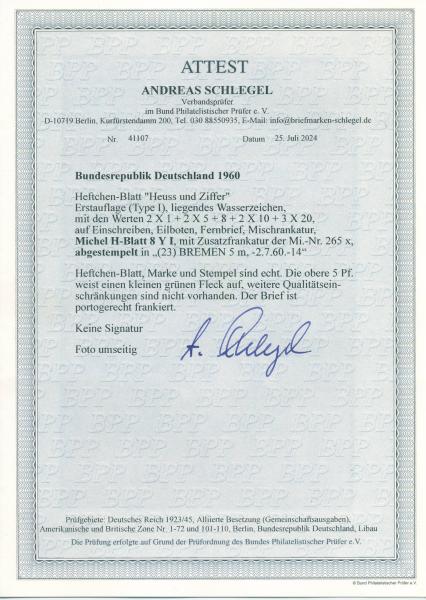 ATTEST
ANDREAS SCHLEGEL
Verbandsprüfer
im Bund Philatelistischer Prüfer e. V.
D-10719 Berlin, Kurfürstendamm 200, Tel. 030 88550935, E-Mail: info@briefmarken-schlegel.de
Nr. 41107 Datum 25. Juli 2024
Bundesrepublik Deutschland 1960
Heftchen-Blatt "Heuss und Ziffer"
Erstauflage (Type I), liegendes Wasserzeichen,
mit den Werten 2 X 1 + 2 X 5 + 8 + 2 X 10 + 3 X 20,
auf Einschreiben, Eilboten, Fernbrief, Mischrankatur,
Michel H-Blatt 8 Y I, mit Zusatzfrankatur der Mi.-Nr. 265 x,
abgestempelt in „(23) BREMEN 5 m, -2.7.60.-14“
Heftchen-Blatt, Marke und Stempel sind echt. Die obere 5 Pf.
weist einen kleinen grünen Fleck auf, weitere Qualitätsein-
schränkungen sind nicht vorhanden. Der Brief ist
portogerecht frankiert.
Keine Signatur
Foto umseitig
A. Schlegel
Prüfgebiete: Deutsches Reich 1923/45, Alliierte Besetzung (Gemeinschaftsausgaben),
Amerikanische und Britische Zone Nr. 1-72 und 101-110, Berlin, Bundesrepublik Deutschland, Libau
Die Prüfung erfolgte auf Grund der Prüfordnung des Bundes Philatelistischer Prüfer e.V.
© Bund Philatelistischer Prüfer e.V.